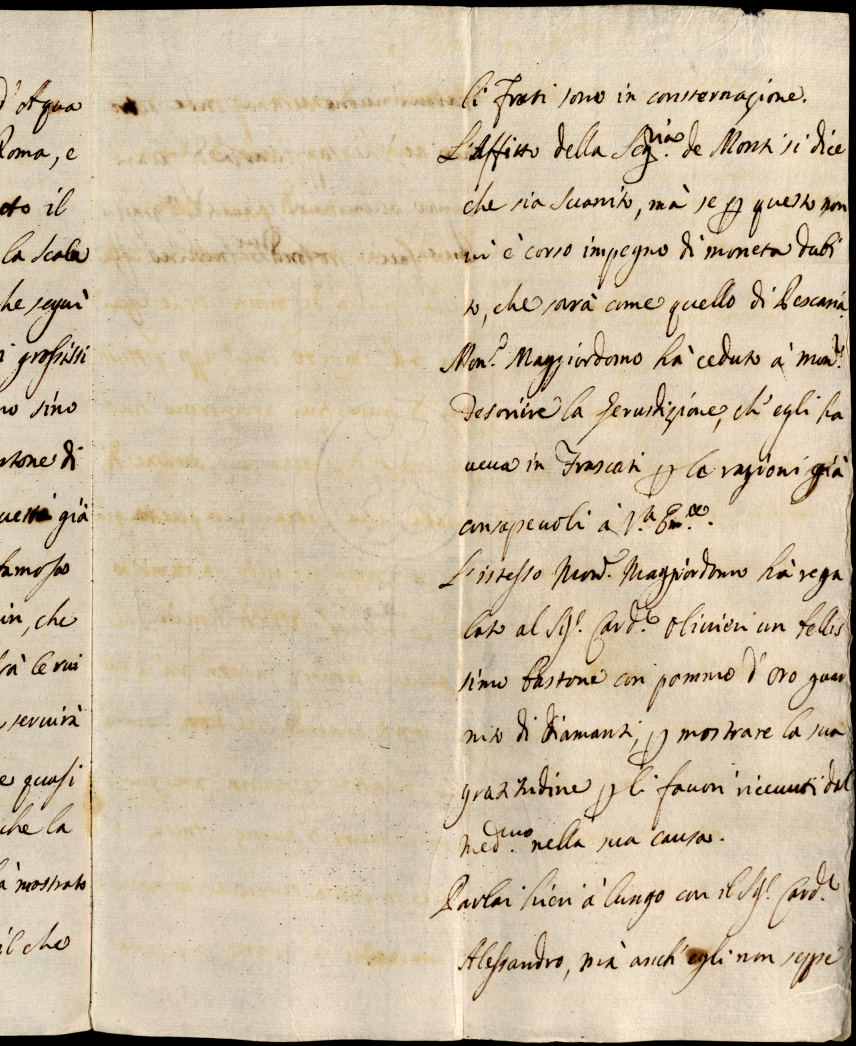 d'Aqua
Roma, e
il
la Scala
he seguì
i grossissi
no sino
di
già
famoso
in, che
servirà
e quasi
che la
à mostrato
il che
li Frati sono in consternazione.
L'Affitto della Sig.ria de Monti si dice
che sia suanito, mà se p questo non
ui è corso impegno di moneta dubi
to, che sarà come quello di Pescaria
Mon.r Maggiordomo hà ceduto à mon.r
la Jerusdizione, ch'egli ha
ueua in Frascati p le ragioni già
consapeuoli à V.ra Em.za.
L'istesso Mon.r Maggiordomo hà rega
lato al Sig.r Card.l Oliuieri un bellis
simo bastone con pommo d'oro guar
nito di diamanti, p mostrare la sua
gratitudine p li fauori riceuuti dal
med.mo nella sua causa.
Parlai hieri à lungo con il Sig.r Card.l
Alessandro, mà anch'egli non seppe